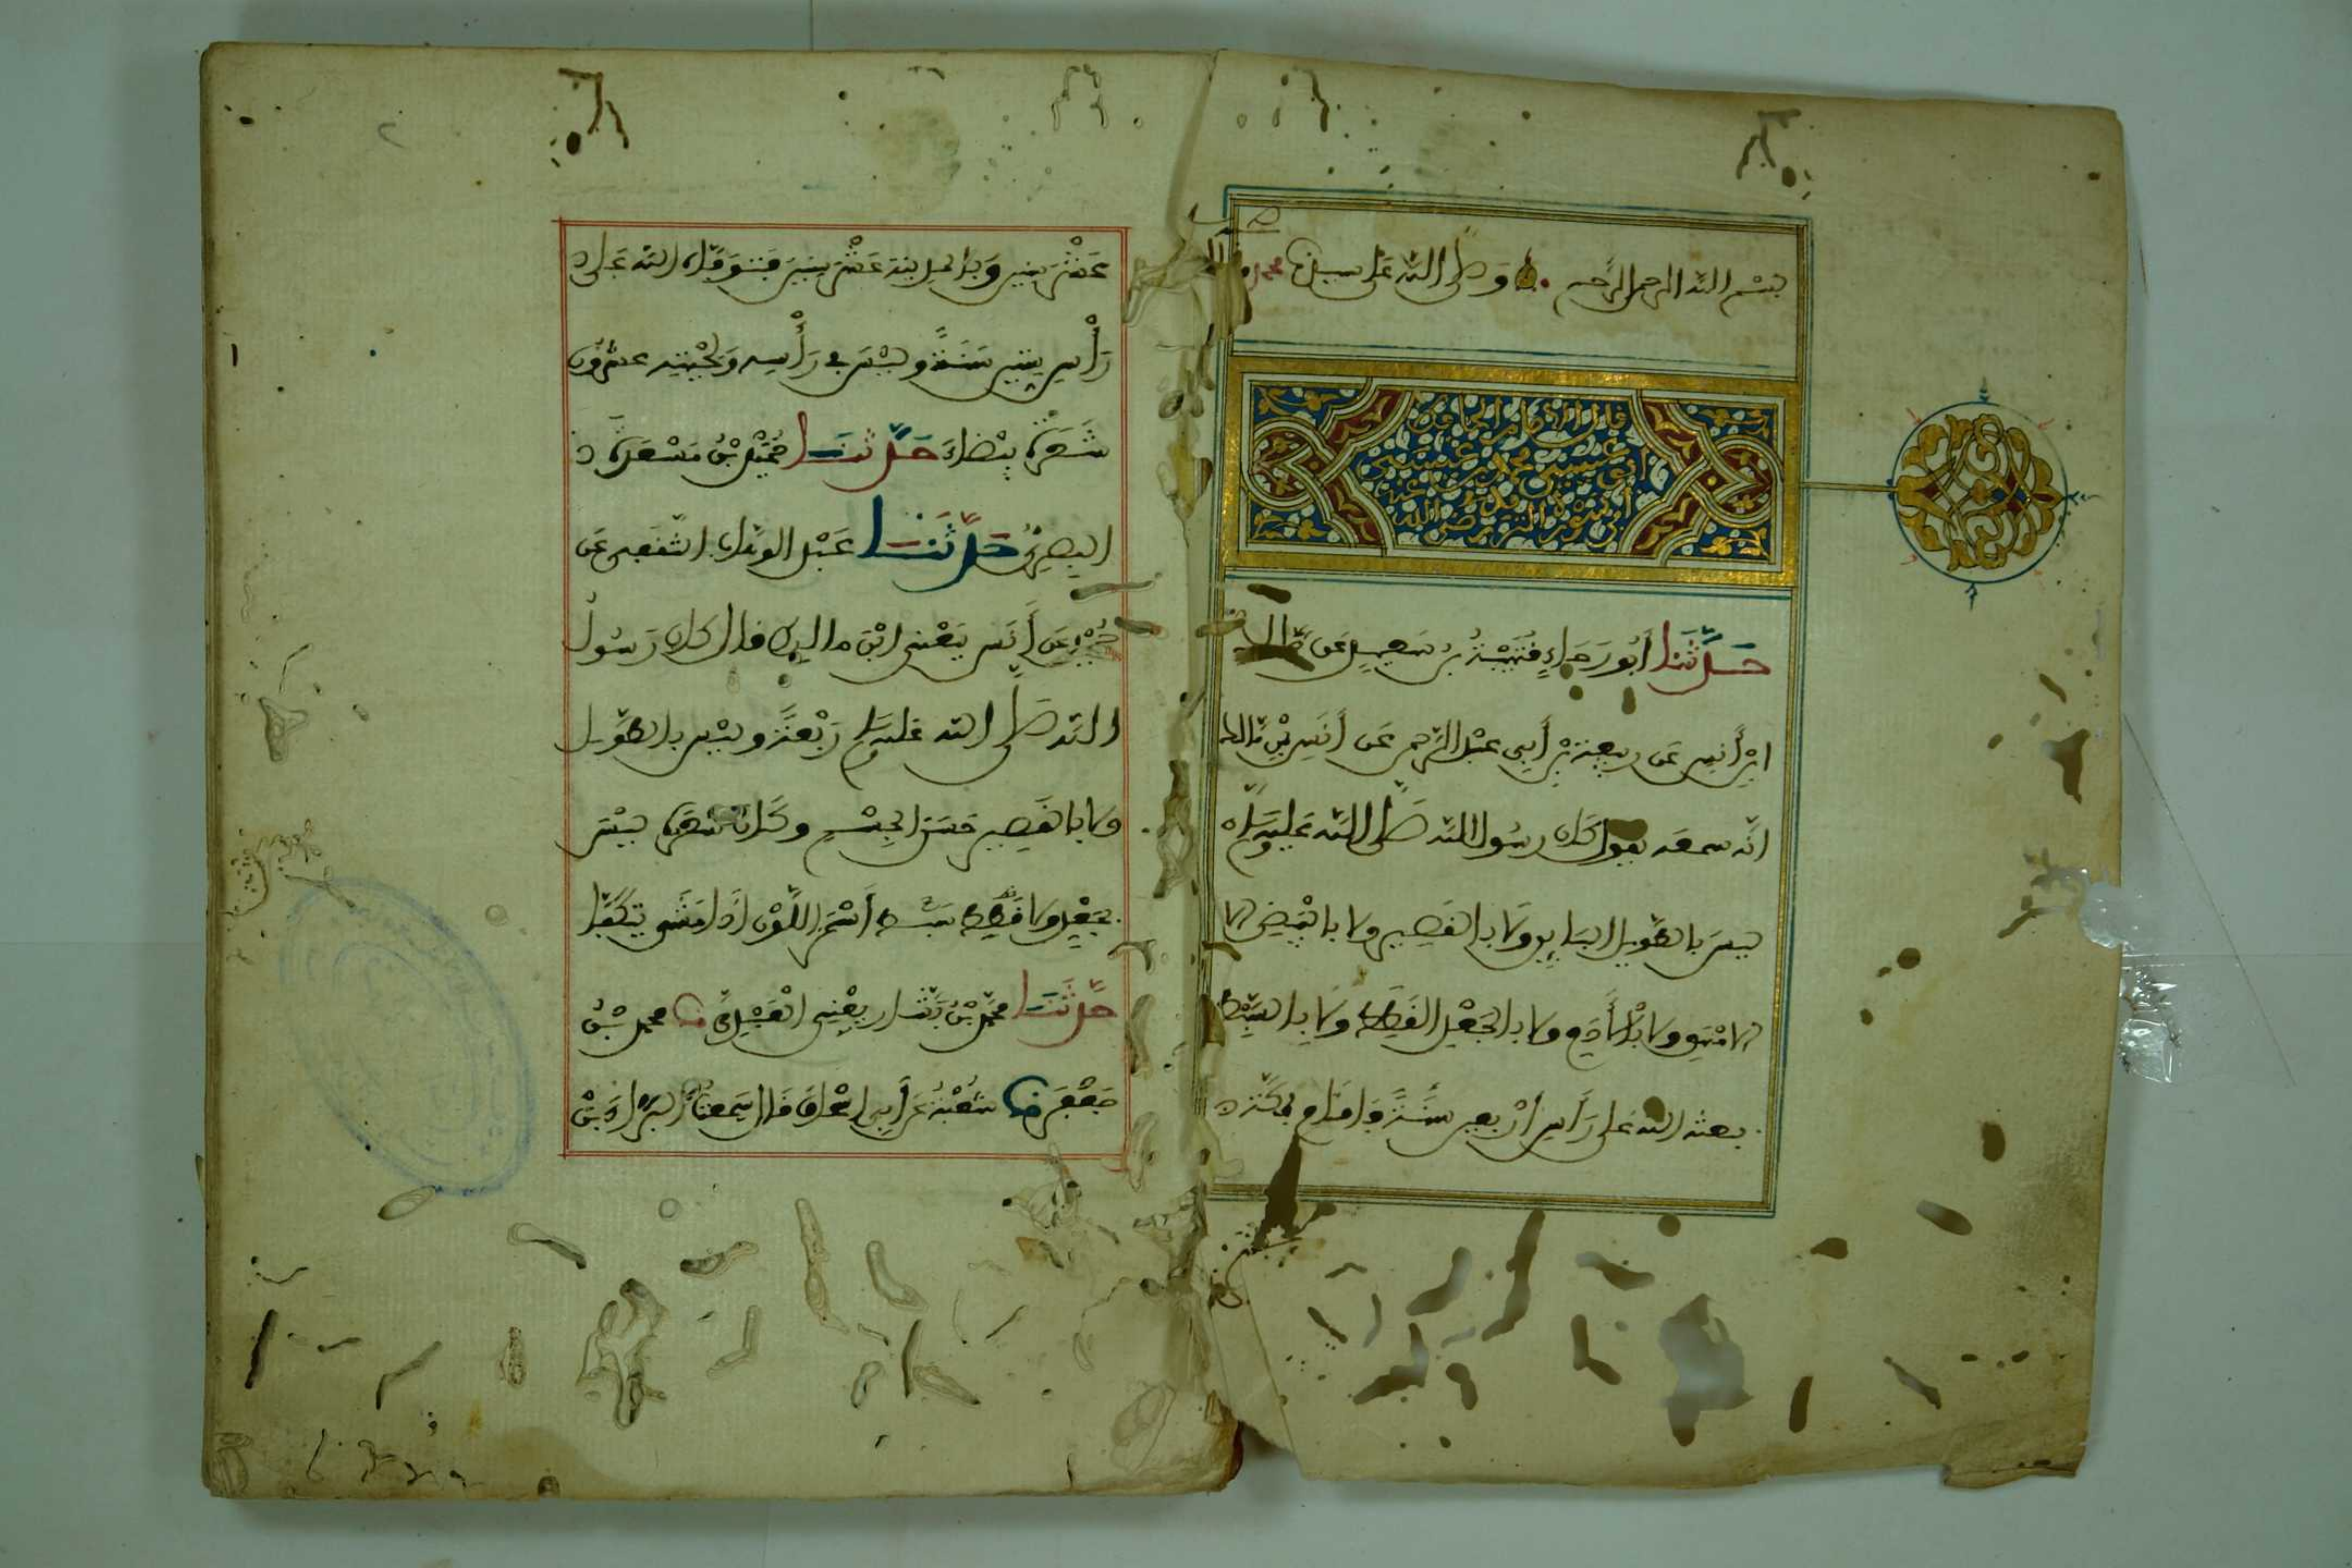 بسم الله الرحمن الرحيم وصلى الله على سيدنا محمد
قال الإمام الحافظ
أبو عيسى محمد بن عيسى بن
سورة الترمذي رضي الله
حَدَّثَنَا أَبُو رَجَاءٍ قُتَيْبَةُ بْنُ سَعِيدٍ عَن مَالك
ابْن أَنَسٍ عَن رَبِيعَةَ بْنِ أَبِي عَبْدِ الرَّحمن عَن أَنَسِ بْنِ مَالك
أنّه سمعه يقول كَان رسُول اللّه صَلَّى اللّه عَليهِ وَسَلَّم
ليسَ بالطَّوِيلِ البَايِنِ وَلَا بِالقَصِيرِ ولا بالأَبْيَضِ الا
الأَمْهَقِ ولا بالأَدَمِ ولا بالجَعْدِ القَطَطِ ولا بالسَّبْطِ
بعثه الله عَلى رَأسِ أَرْبعِين سَنَةً فَأَقَامَ بِمَكَّةَ
عَشْرَ سِنِينَ وَبِالْمَدِينَةِ عَشْرَ سِنِينَ فَتوَفَّاه الله عَلى
رَأْسِ سِتِّينَ سَنَةً وليْسَ في رَأْسِهِ وَلِحْيَتِهِ عشرُون
شَعَرَةً بَيْضَاءَ حَدَّثَنَا حُمَيْدُ بْنُ مَسْعَدَةَ
البَصْرِيُّ حَدَّثَنَا عَبْدُ الوَهَّابِ الثَّقَفِي عَن
حُمَيْدٍ عَن أَنَسٍ يَعْنِي ابْنَ مالِك قال كان رَسُولُ
اللَّه صَلَّى الله عَليه وسَلم رَبْعَةً وليْسَ بالطَّوِيل
ولا بالقَصِيرِ حَسَنَ الجِسْمِ وكَانَ شَعَرُه ليْسَ
بجَعْدٍ ولا سَبْط أَسْمَرَ اللَّوْنِ إذَا مَشَى يَتَكَفَّأُ
حَدَّثَنَا محمَّد بْنُ بَشَّار يَعْنِي العَبْدِيَّ نا محمد بْنُ
جَعْفَر نا شُعْبَةُ عَن أَبِي إِسْحَاقَ قَال سَمِعتُ البَرَاءَ بْنَ